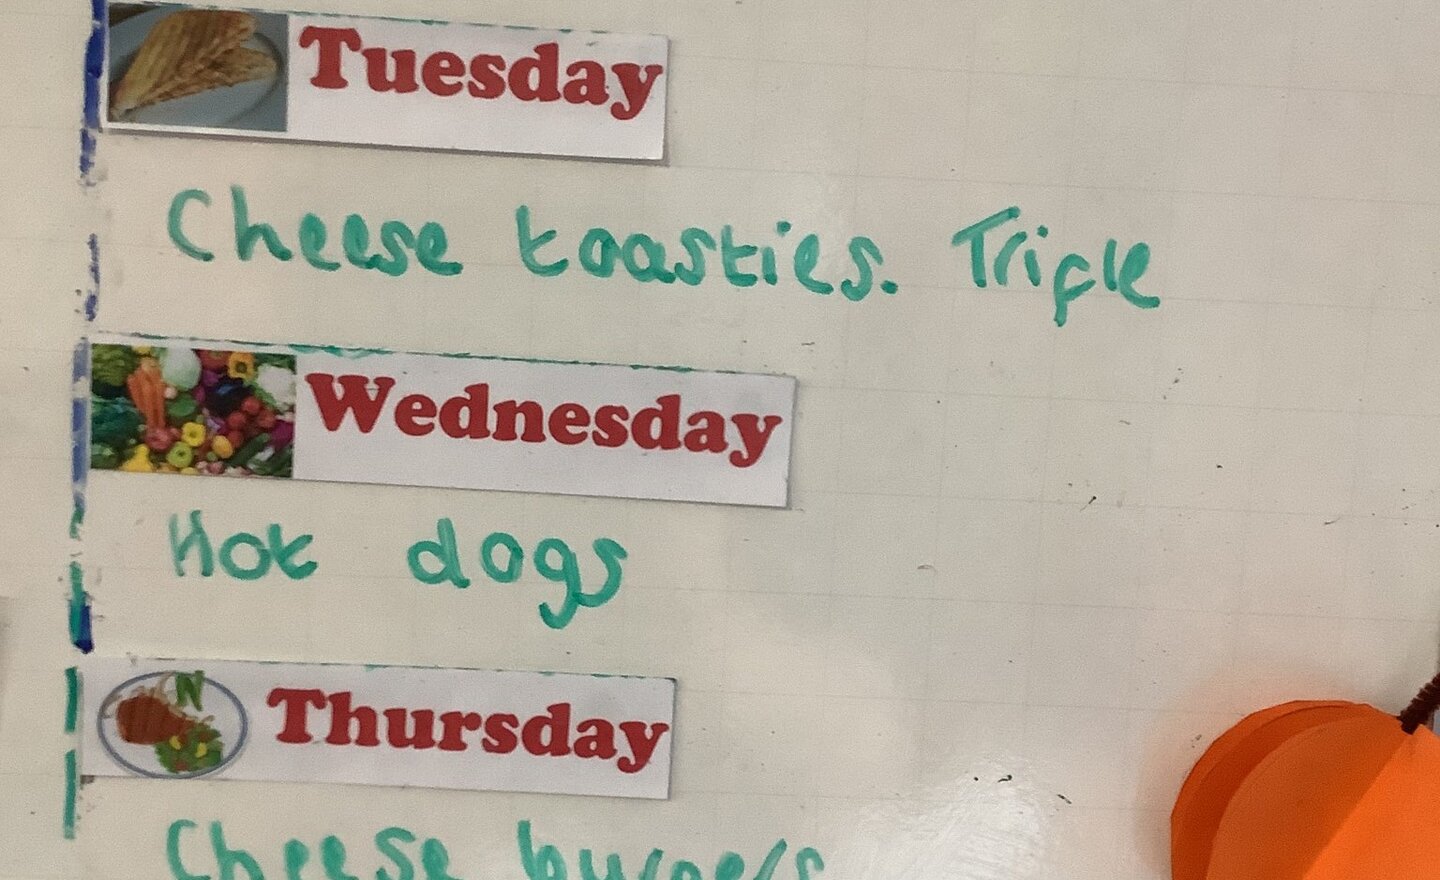 Tuesday
Cheese toasties. Trifle
Wednesday
Hot dogs
Thursday
Cheese burgers